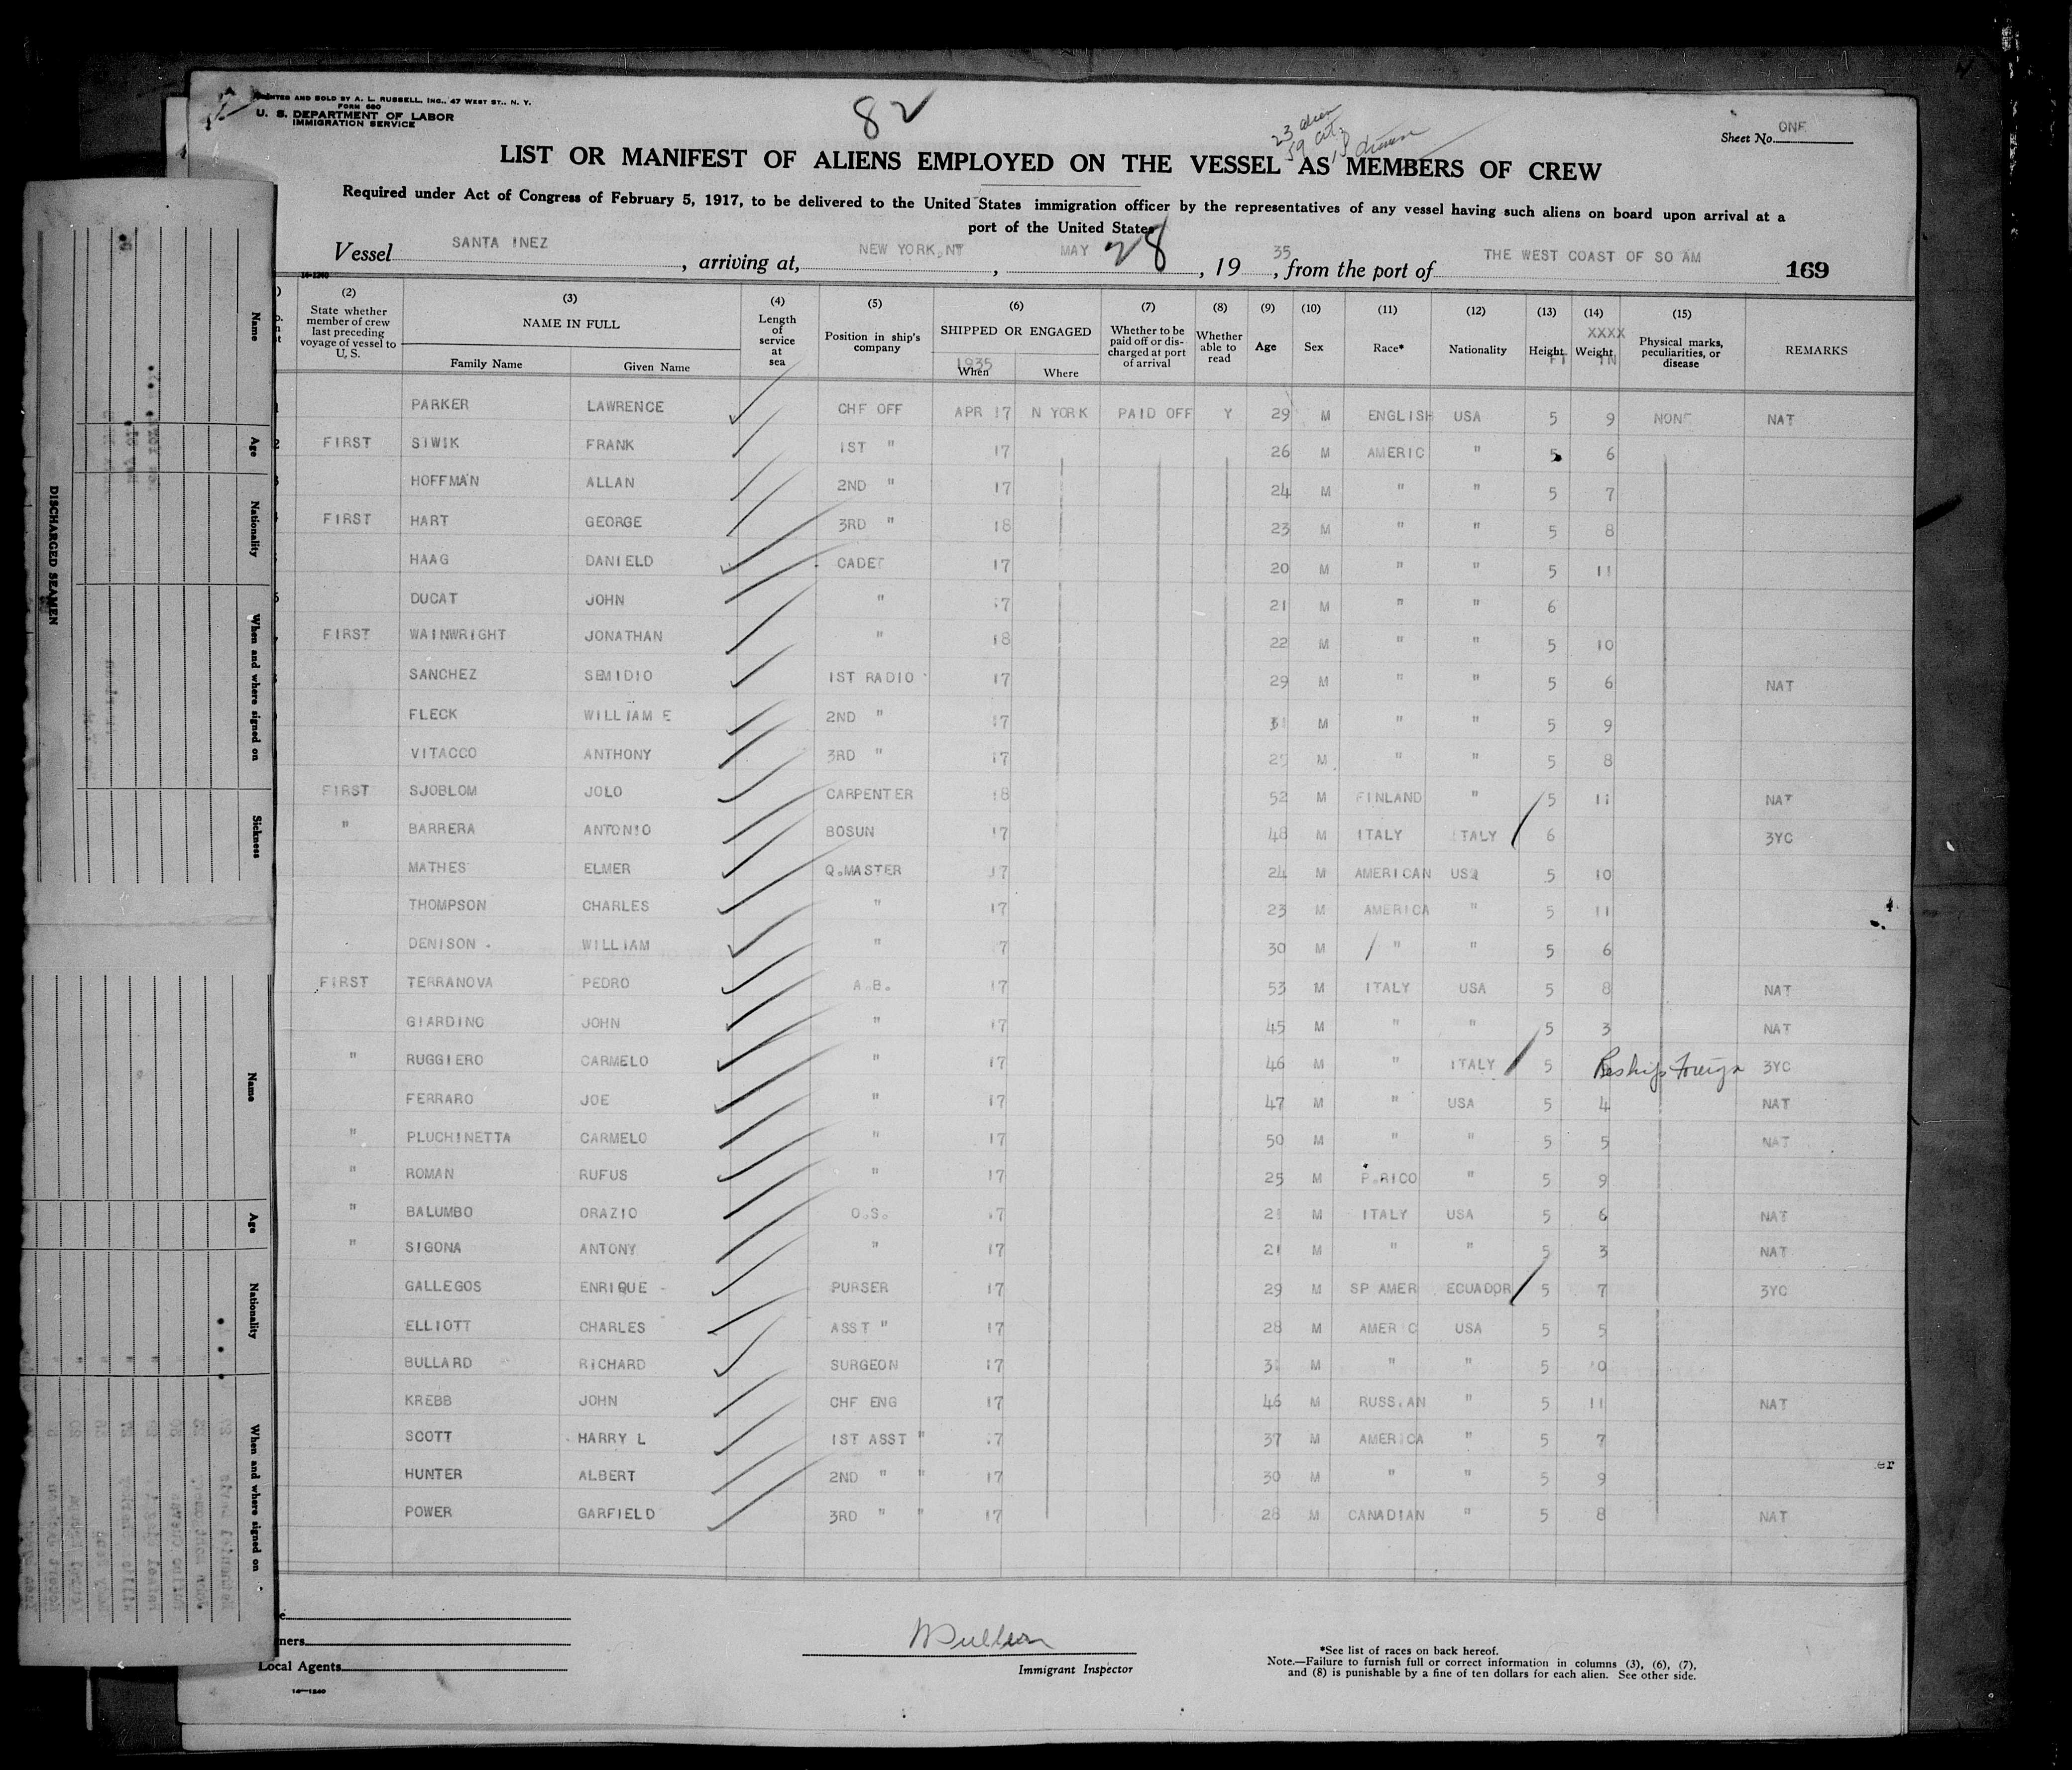 PRINTED AND SOLD BY A. L. RUSSELL, INC., 47 WEST ST., N. Y.
FORM 680
U. S. DEPARTMENT OF LABOR
IMMIGRATION SERVICE
82
23 alien
59 cit
Sheet No. ONE
LIST OR MANIFEST OF ALIENS EMPLOYED ON THE VESSEL AS MEMBERS OF CREW
Required under Act of Congress of February 5, 1917, to be delivered to the United States immigration officer by the representatives of any vessel having such aliens on board upon arrival at a
port of the United States
Vessel SANTA INEZ, arriving at, NEW YORK,NY, MAY 28, 1935, from the port of THE WEST COAST OF SO AM 169
14-1240
(2) (3) (4) (5) (6) (7) (8) (9) (10) (11) (12) (13) (14) (15)
State whether member of crew last preceding voyage of vessel to U. S. NAME IN FULL Family Name Given Name Length of service at sea Position in ship's company SHIPPED OR ENGAGED 1935 When Where Whether to be paid off or discharged at port of arrival Whether able to read Age Sex Race* Nationality Height FT Weight XXXX IN Physical marks, peculiarities, or disease REMARKS
PARKER LAWRENCE CHF OFF APR 17 N YORK PAID OFF Y 29 M ENGLISH USA 5 9 NONE NAT
FIRST SIWIK FRANK 1ST " 17 26 M AMERIC " 5 6
HOFFMAN ALLAN 2ND " 17 24 M " " 5 7
FIRST HART GEORGE 3RD " 18 23 M " " 5 8
HAAG DANIELD CADET 17 20 M " " 5 11
DUCAT JOHN " 17 21 M " " 6
FIRST WAINWRIGHT JONATHAN " 18 22 M " " 5 10
SANCHEZ SEMIDIO 1ST RADIO 17 29 M " " 5 6 NAT
FLECK WILLIAM E 2ND " 17 31 M " " 5 9
VITACCO ANTHONY 3RD " 17 M " " 5 8
FIRST SJOBLOM JOLO CARPENTER 18 52 M FINLAND " 5 11 NAT
" BARRERA ANTONIO BOSUN 17 48 M ITALY ITALY 6 3YC
MATHES ELMER Q.MASTER 17 24 M AMERICAN USA 5 10
THOMPSON CHARLES " 17 23 M AMERICA " 5 11
DENISON . WILLIAM " 7 30 M " " 5 6
FIRST TERRANOVA PEDRO A.B. 17 53 M ITALY USA 5 8 NAT
GIARDINO JOHN " 17 45 M " " 5 3 NAT
" RUGGIERO CARMELO " 17 46 M " ITALY 5 Reships Foreign 3YC
FERRARO JOE " 17 47 M " USA 5 4 NAT
" PLUCHINETTA CARMELO " 17 50 M " " 5 5 NAT
" ROMAN RUFUS " 17 25 M P.RICO " 5 9
" BALUMBO ORAZIO O.S. 17 21 M ITALY USA 5 6 NAT
" SIGONA ANTONY " 17 21 M " " 5 3 NAT
GALLEGOS ENRIQUE PURSER 17 29 M SP AMER ECUADOR 5 7 3YC
ELLIOTT CHARLES ASST " 17 28 M AMERIC USA 5 5
BULLARD RICHARD SURGEON 17 31 M " " 5 10
KREBB JOHN CHF ENG 17 46 M RUSSIAN " 5 11 NAT
SCOTT HARRY L 1ST ASST " 17 37 M AMERICA " 5 7
HUNTER ALBERT 2ND " " 17 30 M " " 5 9
POWER GARFIELD 3RD " " 17 28 M CANADIAN " 5 8 NAT
Local Agents
14-1240
Immigrant Inspector
*See list of races on back hereof.
Note.—Failure to furnish full or correct information in columns (3), (6), (7),
and (8) is punishable by a fine of ten dollars for each alien. See other side.
DISCHARGED SEAMEN
Name Age Nationality When and where signed on Sickness
Name Age Nationality When and where signed on